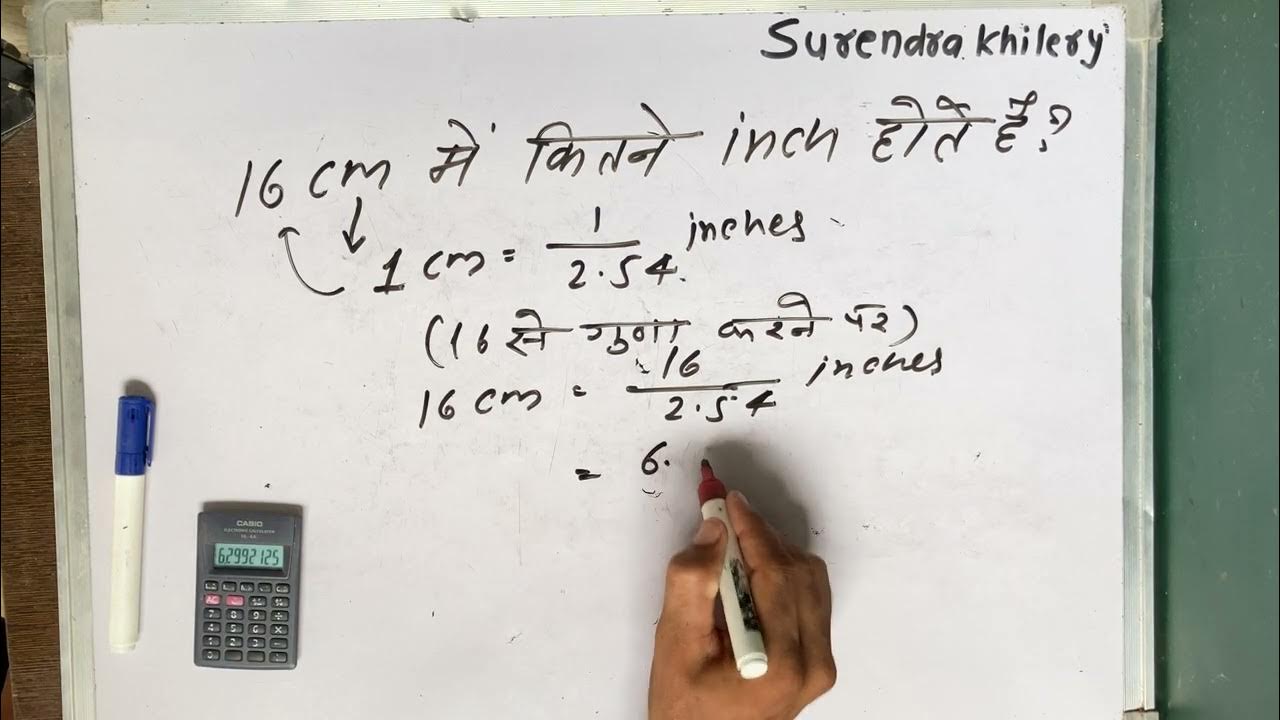 Surendra Khilery
16 cm में कितने inch होते हैं?
1 cm = 1/2.54 inches
(16 से गुणा करने पर)
16 cm = 16/2.54 inches
= 6.
CASIO
6.2992125
AC
7 8 9 ÷
4 5 6 ×
1 2 3 -